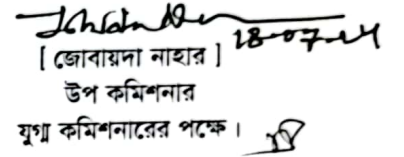 18-07-24
[ জোবায়দা নাহার ]
উপ কমিশনার
যুগ্ম কমিশনারের পক্ষে ।